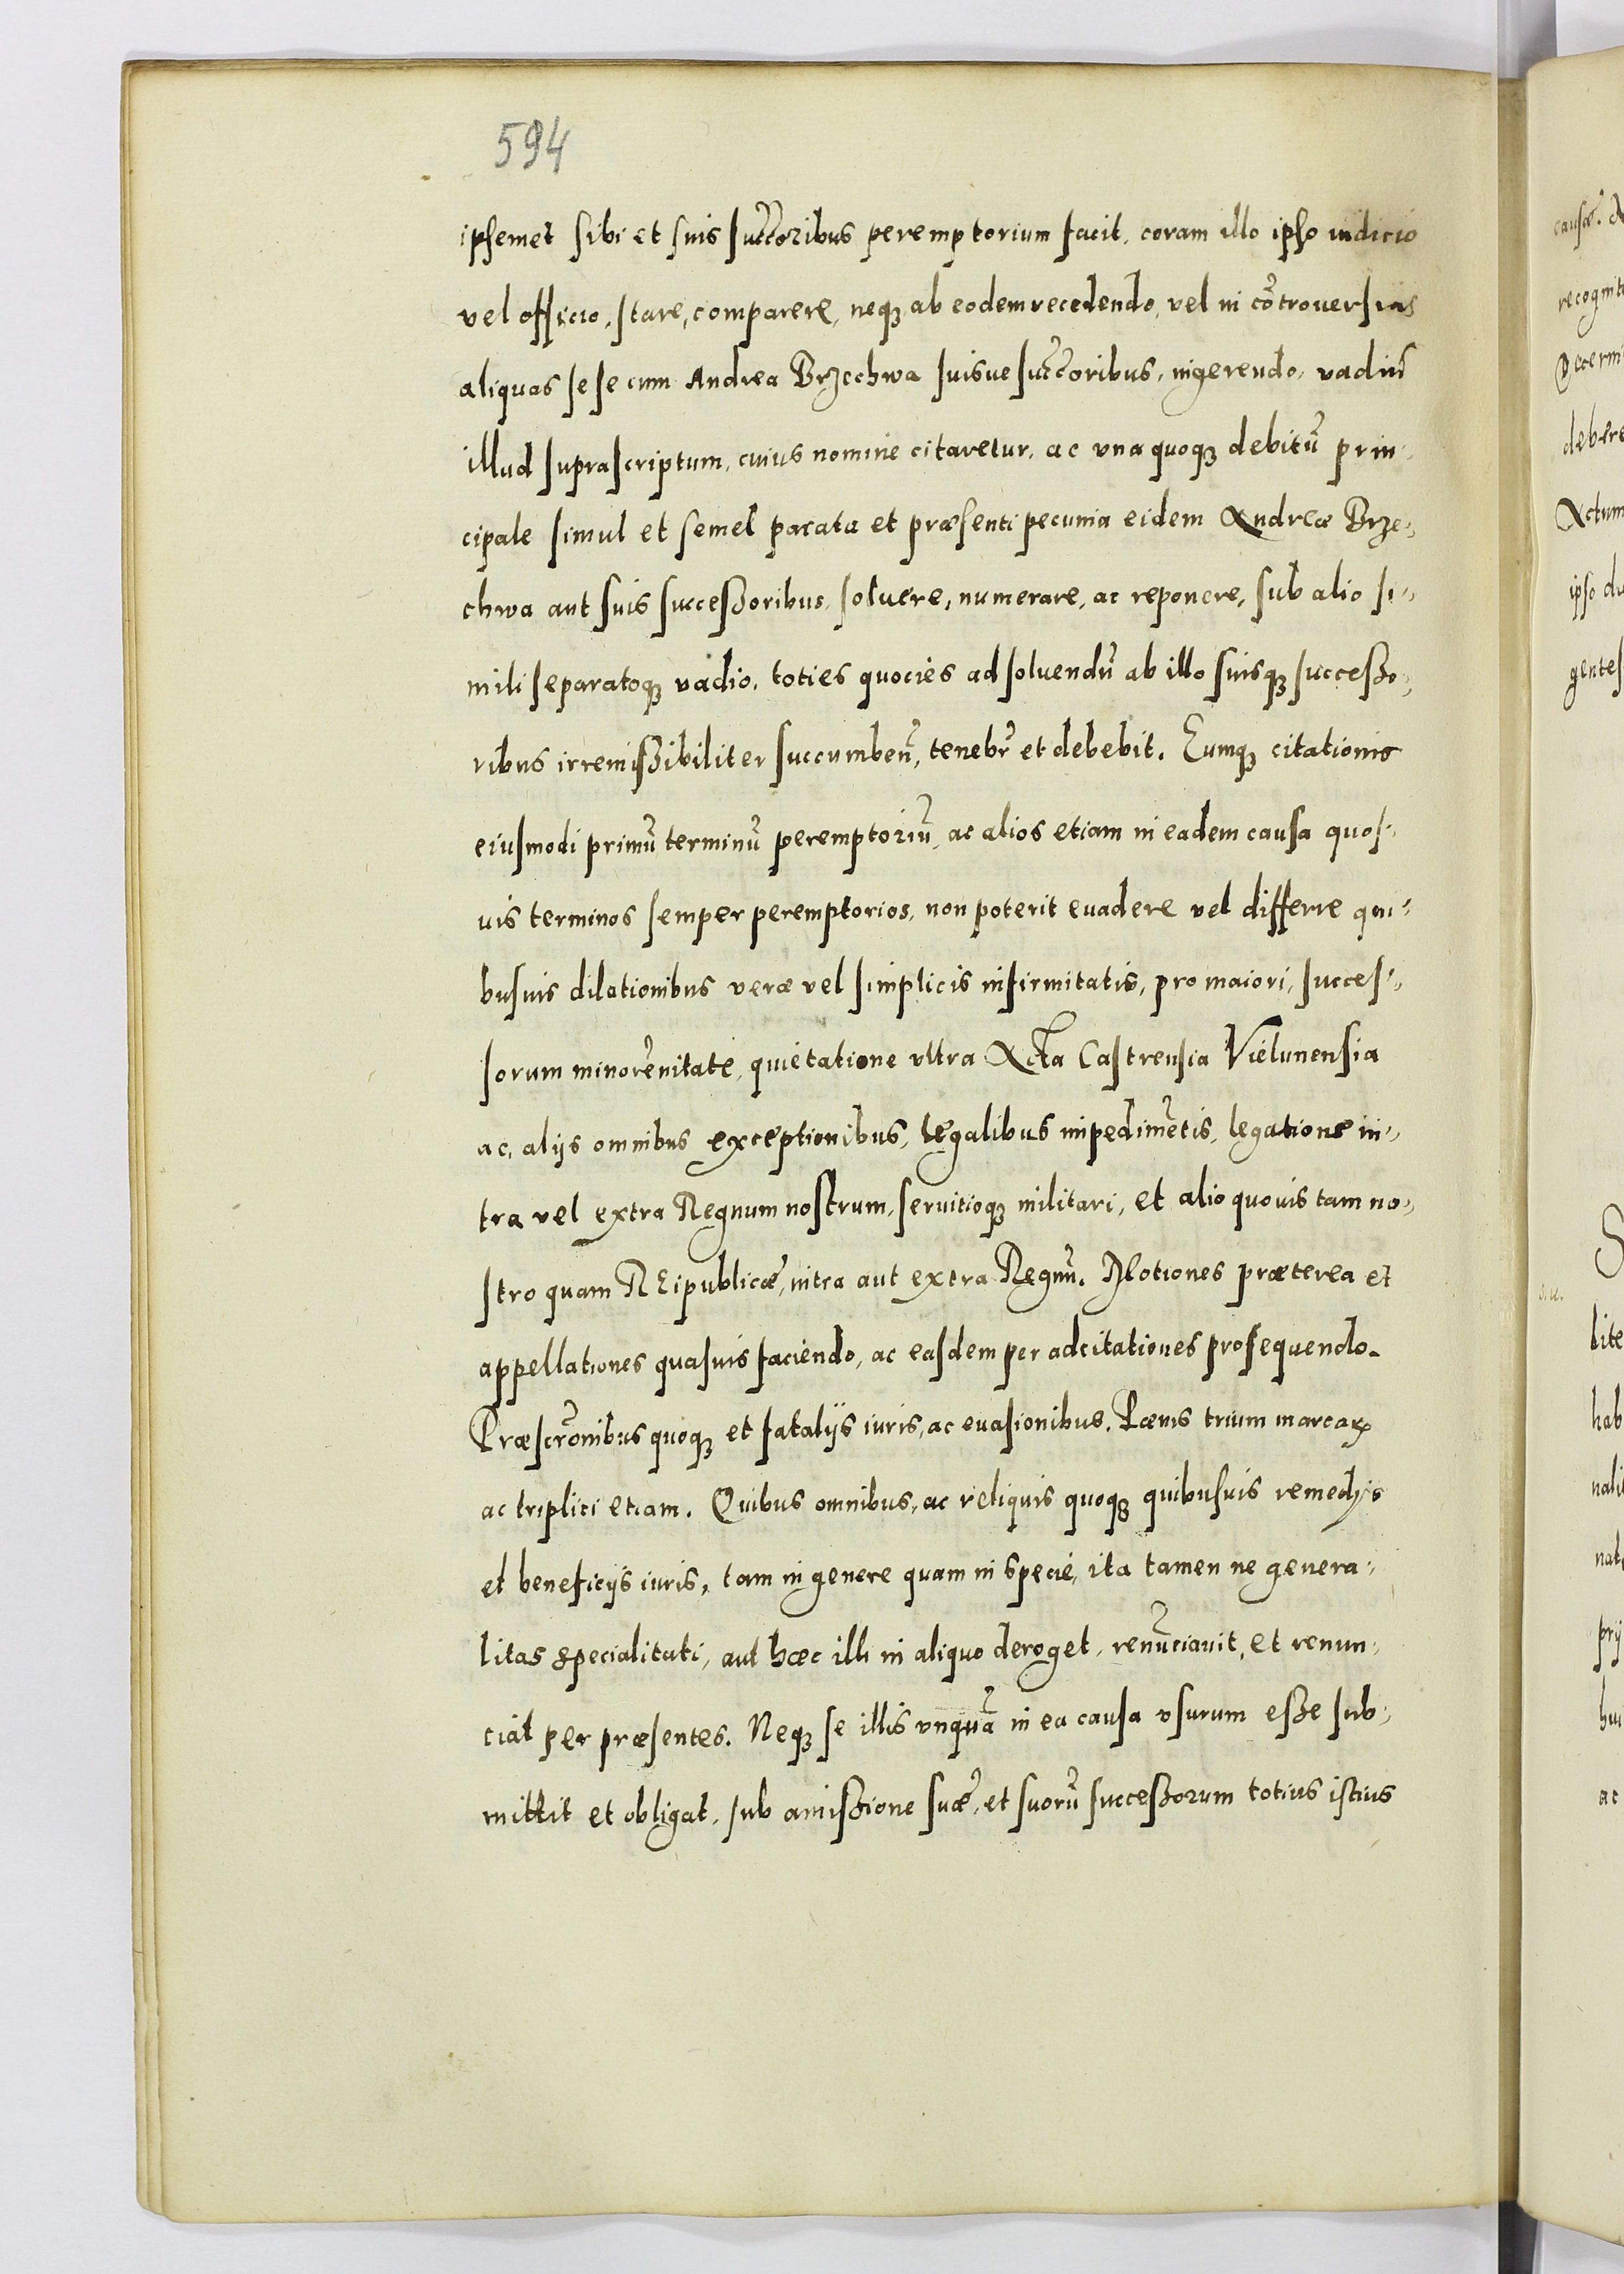 594
ipsemet sibi et suis succoribus peremptorium facit, coram illo ipso iudicio
vel officio, stare, comparere, neqꝫ ab eodem recedendo, vel in cõtroversias
aliquas sese cum Andrea Brzechwa suisue succoribus, ingerendo, vadiũ
illud suprascriptum, cuius nomine citaretur, ac vna quoqꝫ debitũ prin-
cipale simul et semel parata et præsenti pecunia eidem Andreæ Brze-
chwa aut suis successoribus, soluere, numerare, ac reponere, sub alio si-
mili separatoqꝫ vadio, toties quocies ad soluendũ ab illo suisqꝫ successo-
ribus irremissibiliter succumbeñ, tenebr̃ et debebit. Eumqꝫ citationis
eiusmodi primũ terminũ peremptoriũ, ac alios etiam in eadem causa quos-
uis terminos semper peremptorios, non poterit euadere vel differre qui-
busuis dilationibus veræ vel simplicis infirmitatis, pro maiori, succes-
sorum minorẽnitate, quietatione vltra Acta Castrensia Vielunensia
ac, alijs omnibus exceptionibus, legalibus impedimẽtis, legatione in-
tra vel extra Regnum nostrum, seruitioqꝫ militari, et alio quouis tam no-
stro quam REipublicæ, intra aut extra Regnũ. Motiones præterea et
appellationes quasuis faciendo, ac easdem per adcitationes prosequendo.
Præscr̃onibus quoqꝫ et fatalijs iuris, ac euasionibus. Pœnis trium marcaꝝ
ac triplici etiam. Quibus omnibus, ac reliquis quoqꝫ quibusuis remedijs
et beneficijs iuris, tam in genere quam in specie, ita tamen ne genera-
litas specialitati, aut hæc illi in aliquo deroget, renũciauit, et renun-
ciat per præsentes. Neqꝫ se illis vnquã in ea causa vsurum esse sub-
mittit et obligat, sub amissione suæ, et suorũ successorum totius istius
causæ.
debere
Actum
gentes